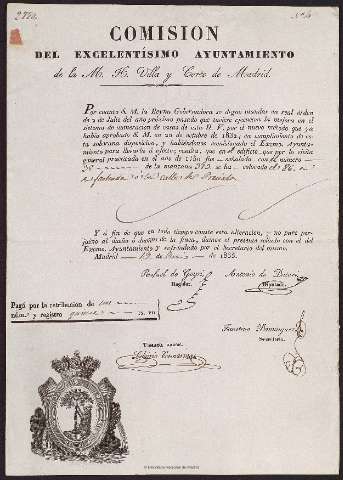 COMISION
DEL EXCELENTÍSIMO AYUNTAMIENTO
de la M. H. Villa y Corte de Madrid.
Por cuanto S. M. la Reyna Gobernadora se dignó mandar en real órden
de 2 de Julio del año próximo pasado que tuviera ejecucion la mejora en el
sistema de numeracion de casas de esta H. V. por el nuevo método que ya
habia aprobado S. M. en 22 de octubre de 1832, en cumplimiento de es-
ta soberana disposicion, y habiéndose comisionado el Excmo. Ayunta-
miento para llevarla á efecto; resulta, que en el edificio que por la visita
general practicada en el año de 1750 fue señalado con el número
de la manzana 273 se ha colocado el
fachada á la calle de
Y á fin de que en todo tiempo conste esta alteracion, y no pare per-
juicio al dueño ó dueños de la finca, damos el presente
del
Excmo. Ayuntamiento y refrendado por el Secretario del mismo.
Madrid 19 de Junio de 1835.
Rafael de
Regidor.
Antonio de
Diputado.
Pagó por la retribucion de
núm.s y registro quince rs. vn.
Faustino Dominguez
Secretario.
Tomada razon.